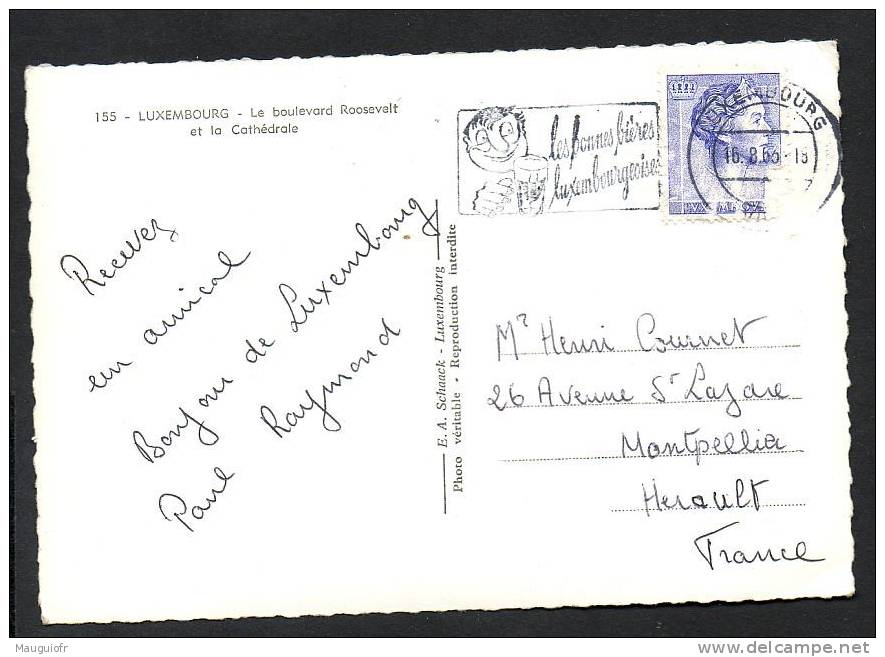 155 - LUXEMBOURG - Le boulevard Roosevelt
et la Cathédrale
les bonnes bières
luxembourgeoises
LUXEMBOURG
16. 8.63-18
Recevez
un amical
Bonjour de Luxembourg
Paul Raymond
E. A. Schaack - Luxembourg
Photo véritable - Reproduction interdite
Mr Henri Cournet
26 Avenue St Lazare
Montpellier
Herault
France
Mauguiofr
delcampe.net